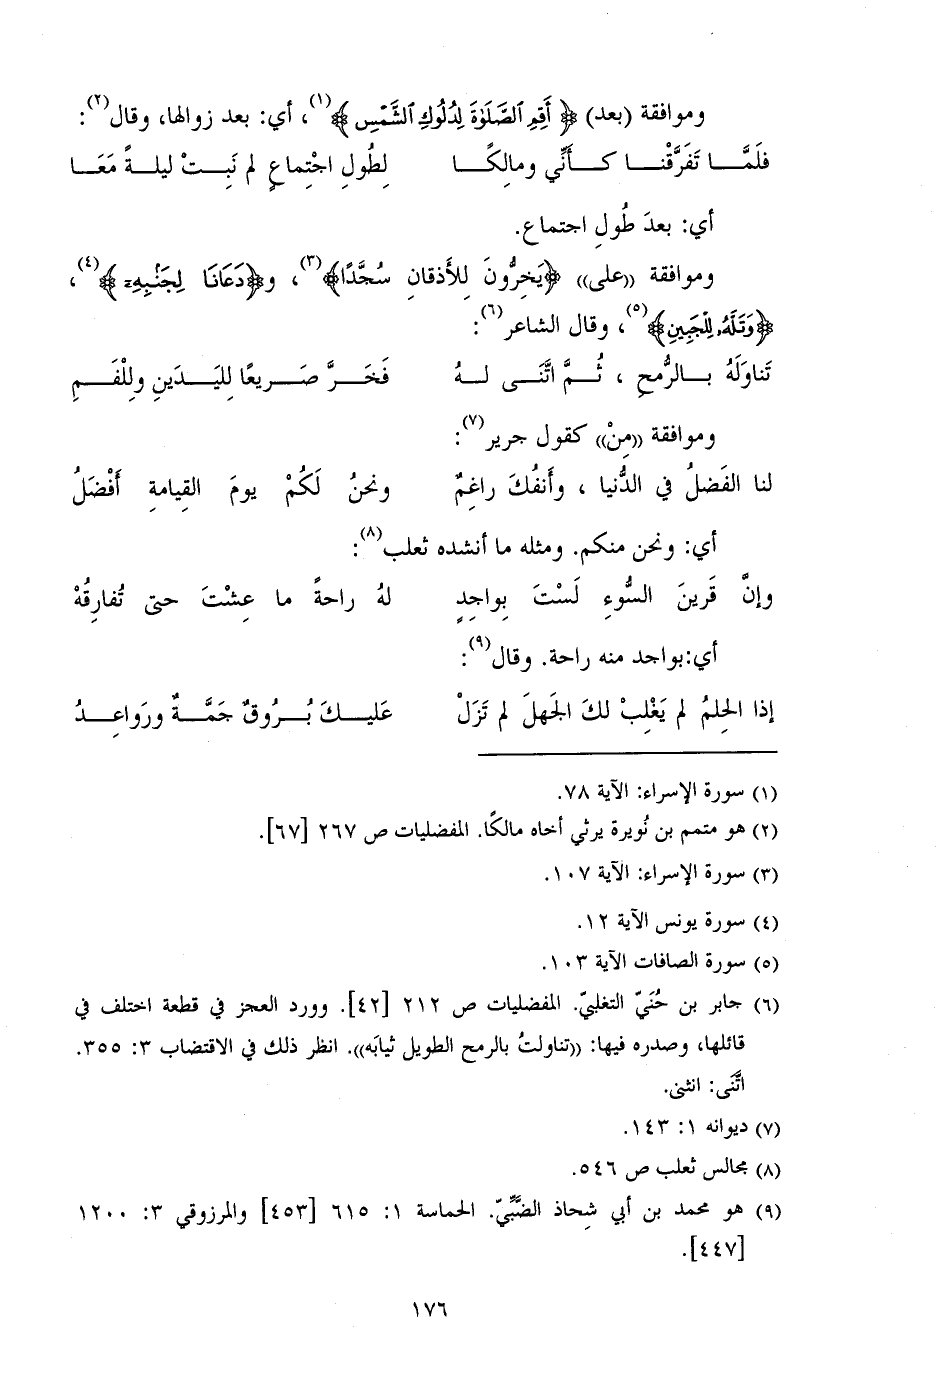 وموافقة (بعد) ﴿أَقِمِ ٱلصَّلَوٰةَ لِدُلُوكِ ٱلشَّمْسِ﴾(١)، أي: بعد زوالها، وقال(٢):
فلَمَّا تَفَرَّقْنا كأَنِّي ومالِكًا لِطُولِ اجْتِماعٍ لم نَبِتْ ليلةً مَعَا
أي: بعدَ طُولِ اجتماع.
وموافقة «على» ﴿يَخِرُّونَ لِلأَذقانِ سُجَّدًا﴾(٣)، و﴿دَعَانَا لِجَنۢبِهِۦٓ﴾(٤)،
﴿وَتَلَّهُۥ لِلْجَبِينِ﴾(٥)، وقال الشاعر(٦):
تَناوَلَهُ بالرُّمحِ ، ثُمَّ اتَّنَى لهُ فَخَرَّ صَريعًا لليَدَينِ وللْفَمِ
وموافقة «مِنْ» كقول جرير(٧):
لنا الفَضلُ في الدُّنيا ، وأَنفُكَ راغِمٌ ونحنُ لَكُمْ يومَ القِيامةِ أَفْضَلُ
أي: ونحن منكم. ومثله ما أنشده ثعلب(٨):
وإنَّ قَرينَ السُّوءِ لَسْتَ بِواجِدٍ لهُ راحةً ما عِشْتَ حتى تُفارِقُهْ
أي:بواجد منه راحة. وقال(٩):
إذا الحِلمُ لم يَغْلِبْ لكَ الجَهلَ لم تَزَلْ عَليكَ بُرُوقٌ جَمَّةٌ ورَواعِدُ
(١) سورة الإسراء: الآية ٧٨.
(٢) هو متمم بن نُويرة يرثي أخاه مالكًا. المفضليات ص ٢٦٧ [٦٧].
(٣) سورة الإسراء: الآية ١٠٧.
(٤) سورة يونس الآية ١٢.
(٥) سورة الصافات الآية ١٠٣.
(٦) جابر بن حُنَيّ التغلبيّ. المفضليات ص ٢١٢ [٤٢]. وورد العجز في قطعة اختلف في
قائلها، وصدره فيها: «تناولتُ بالرمح الطويل ثيابَه». انظر ذلك في الاقتضاب ٣: ٣٥٥.
اتَّنَى: انثنى.
(٧) ديوانه ١: ١٤٣.
(٨) مجالس ثعلب ص ٥٤٦.
(٩) هو محمد بن أبي شِحاذ الضَّبِّيّ. الحماسة ١: ٦١٥ [٤٥٣] والمرزوقي ٣: ١٢٠٠
[٤٤٧].
١٧٦